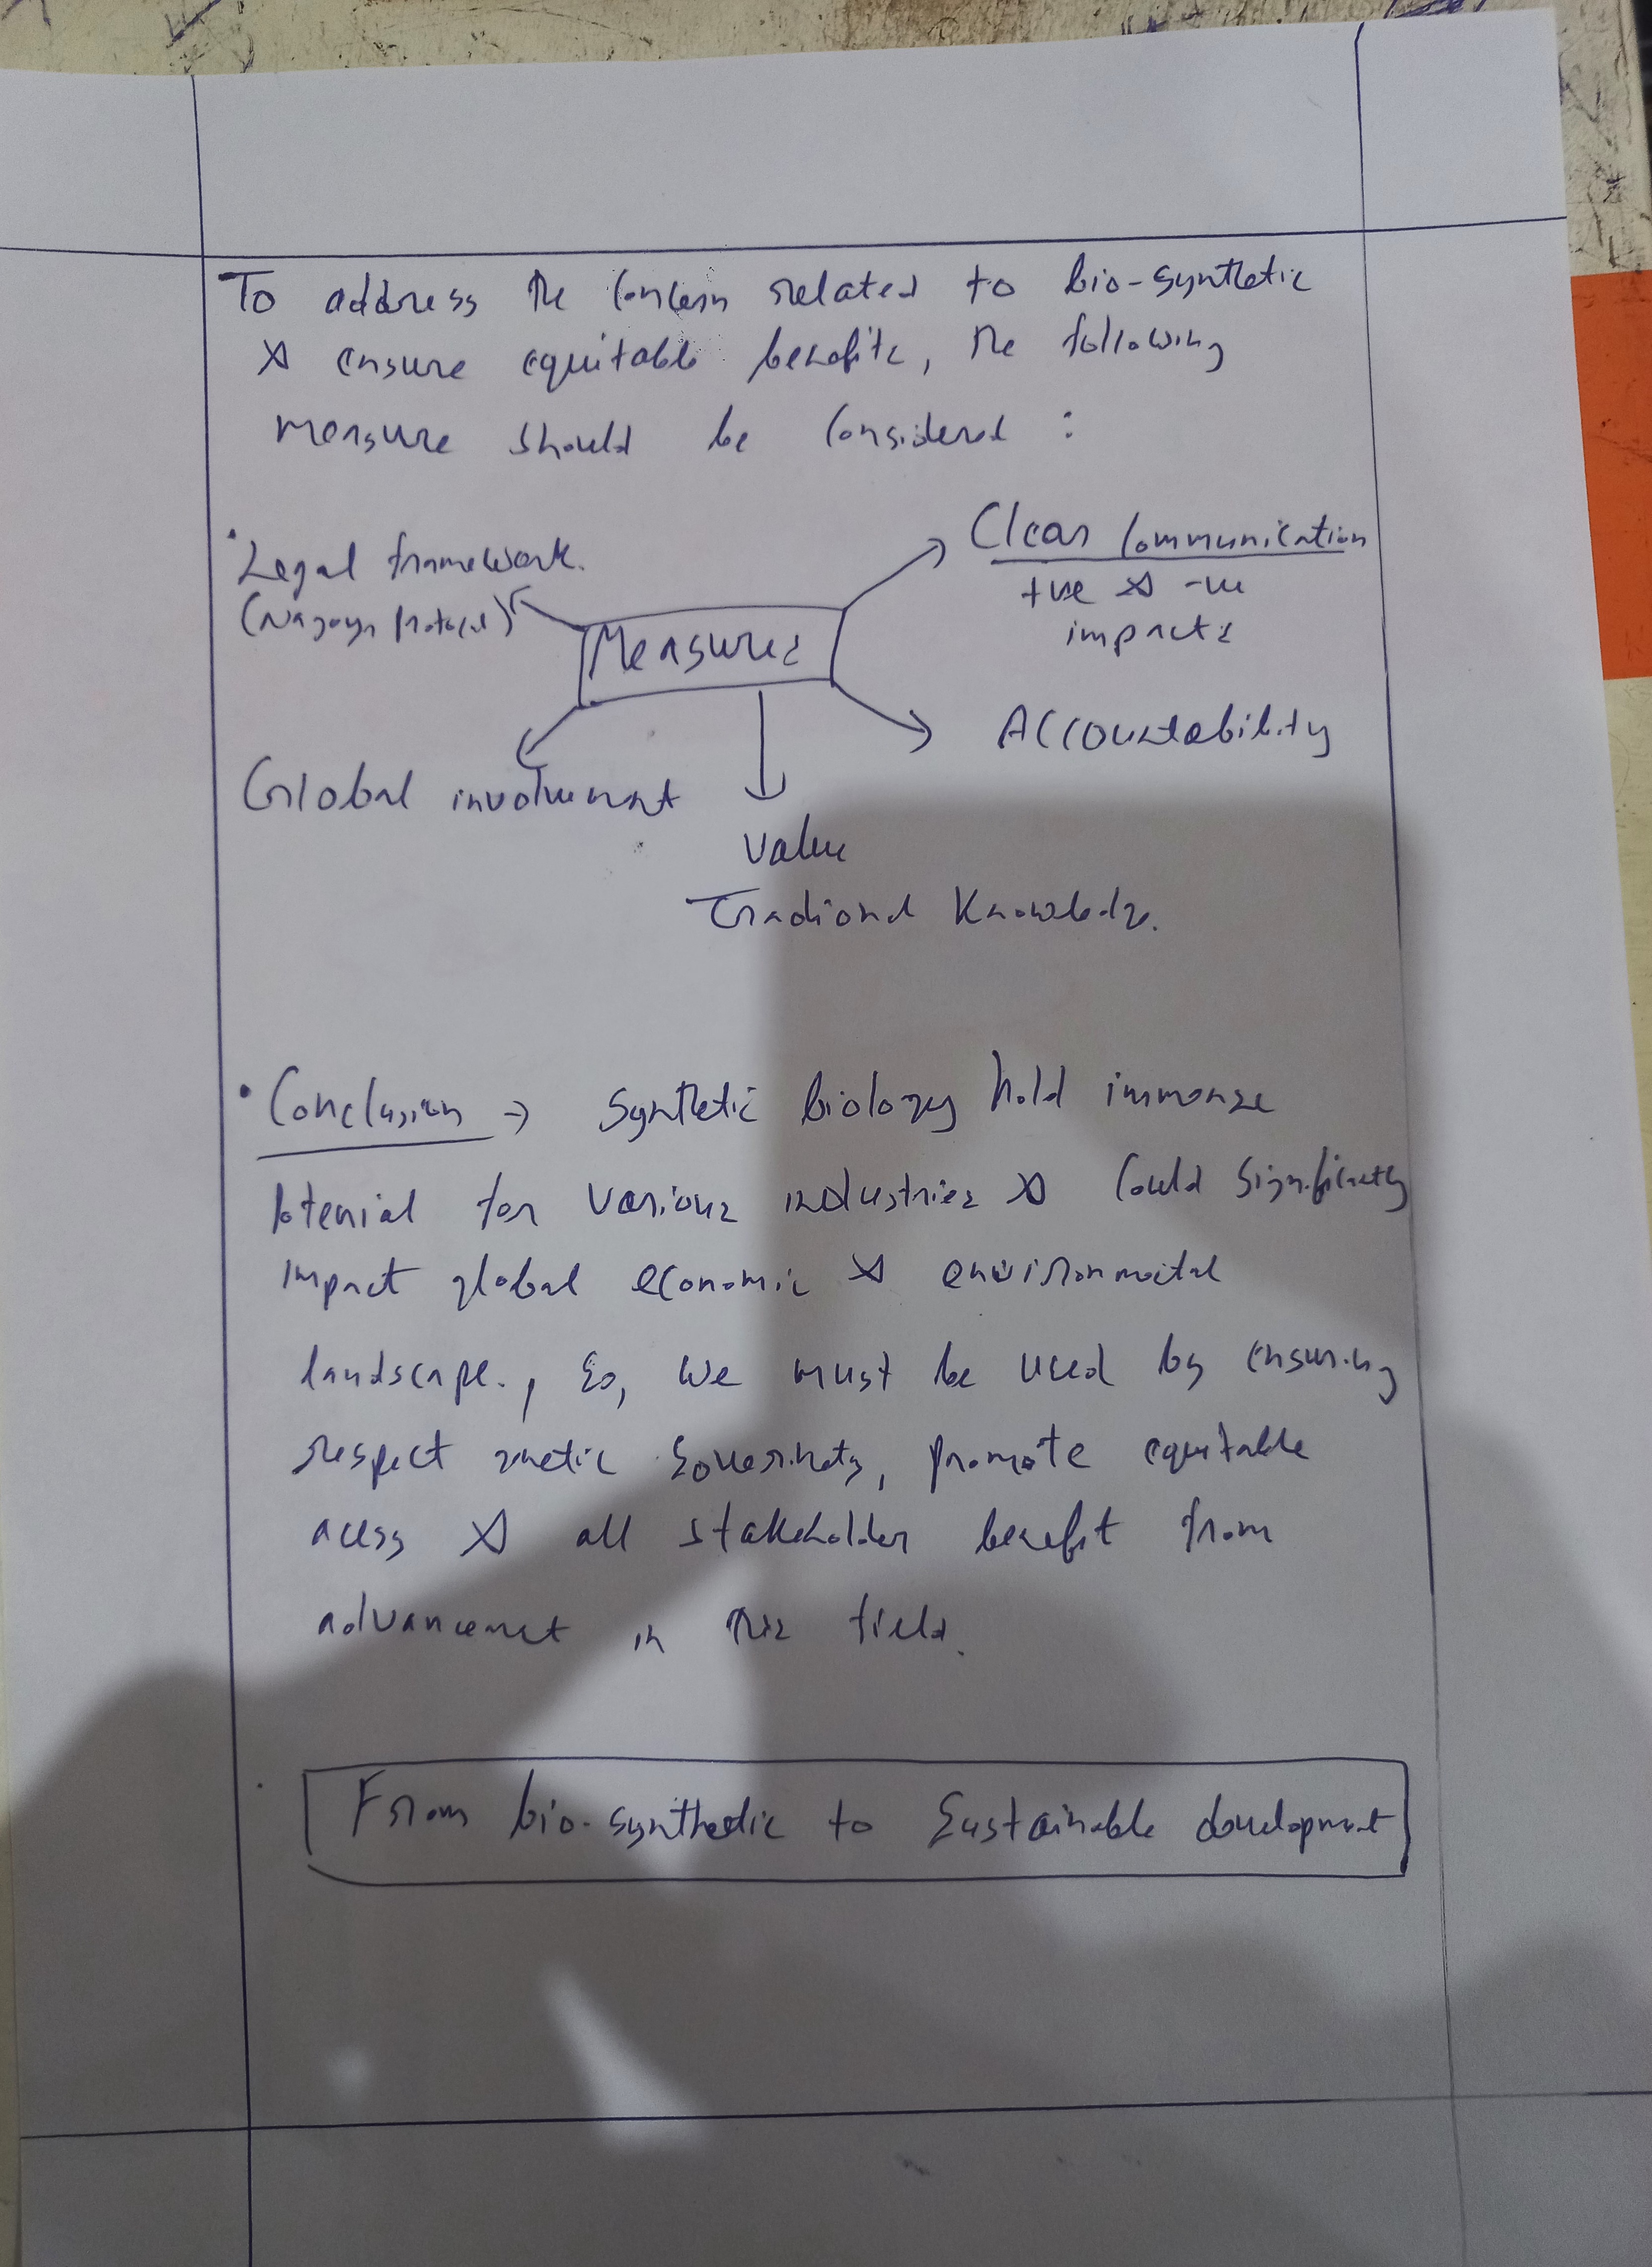 To address the concern related to bio-synthetic
& ensure equitable benefits, the following
measure should be considered :
• Legal framework.
(Nagoya Protocol)
Clear Communication
+ve & -ve
impacts
Measures
Accountability
Global involvement
value
Tradional Knowledge.
• Conclusion → Synthetic biology hold immense
potenial for various industries & could significantly
impact global economic & environmental
landscape., So, we must be used by ensuring
respect genetic soverinety, promote equitable
acess & all stakeholder benefit from
advancement in this field.
From bio-synthetic to Sustainable development